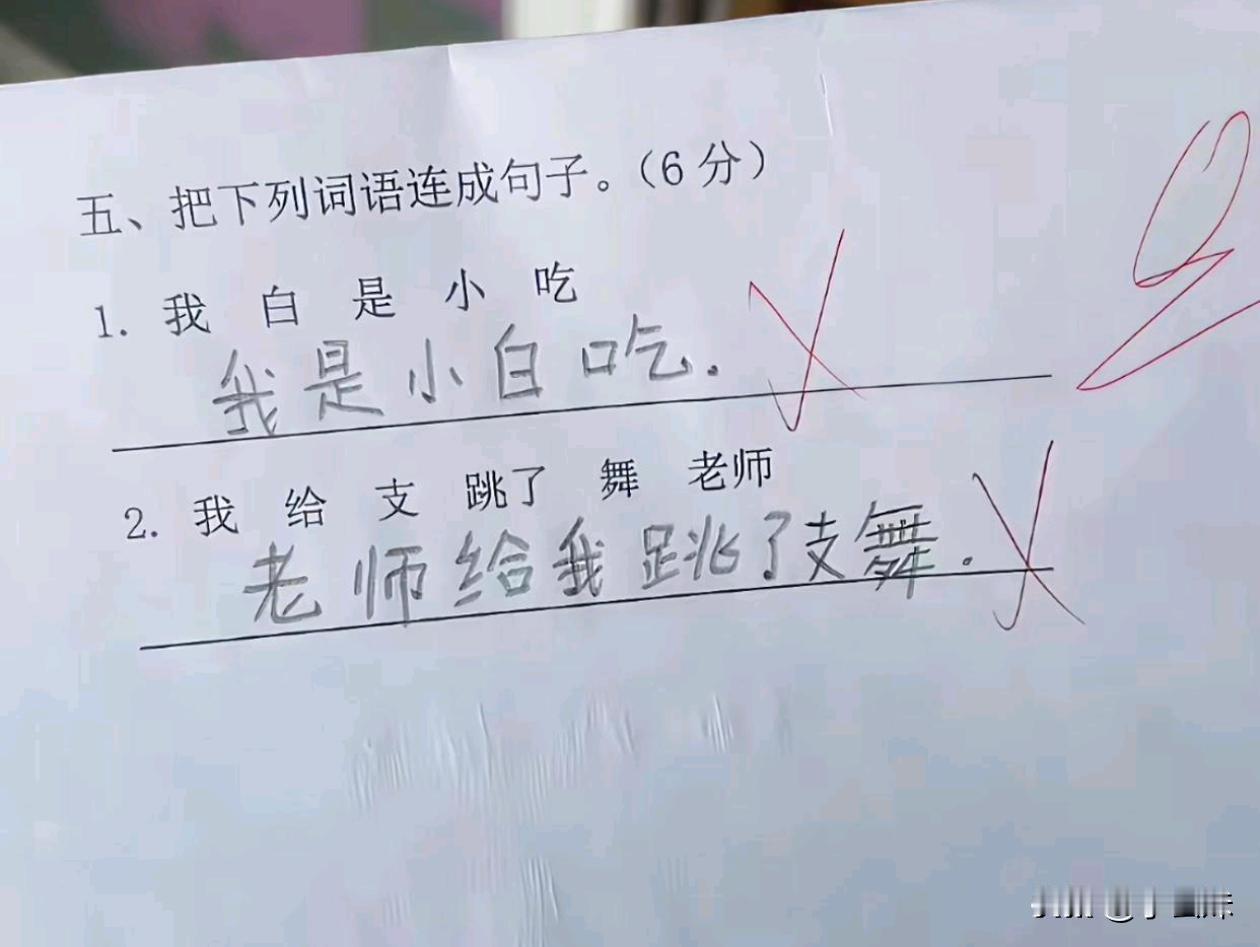 五、把下列词语连成句子。（6分）
1. 我 白 是 小 吃
我是小白吃.
2. 我 给 支 跳了 舞 老师
老师给我跳了支舞.